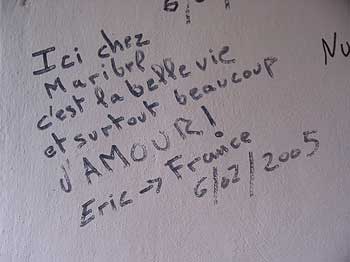 Ici chez
Maribel
c'est la belle vie
et surtout beaucoup
d'AMOUR!
Eric → France
6/02/2005
Nu